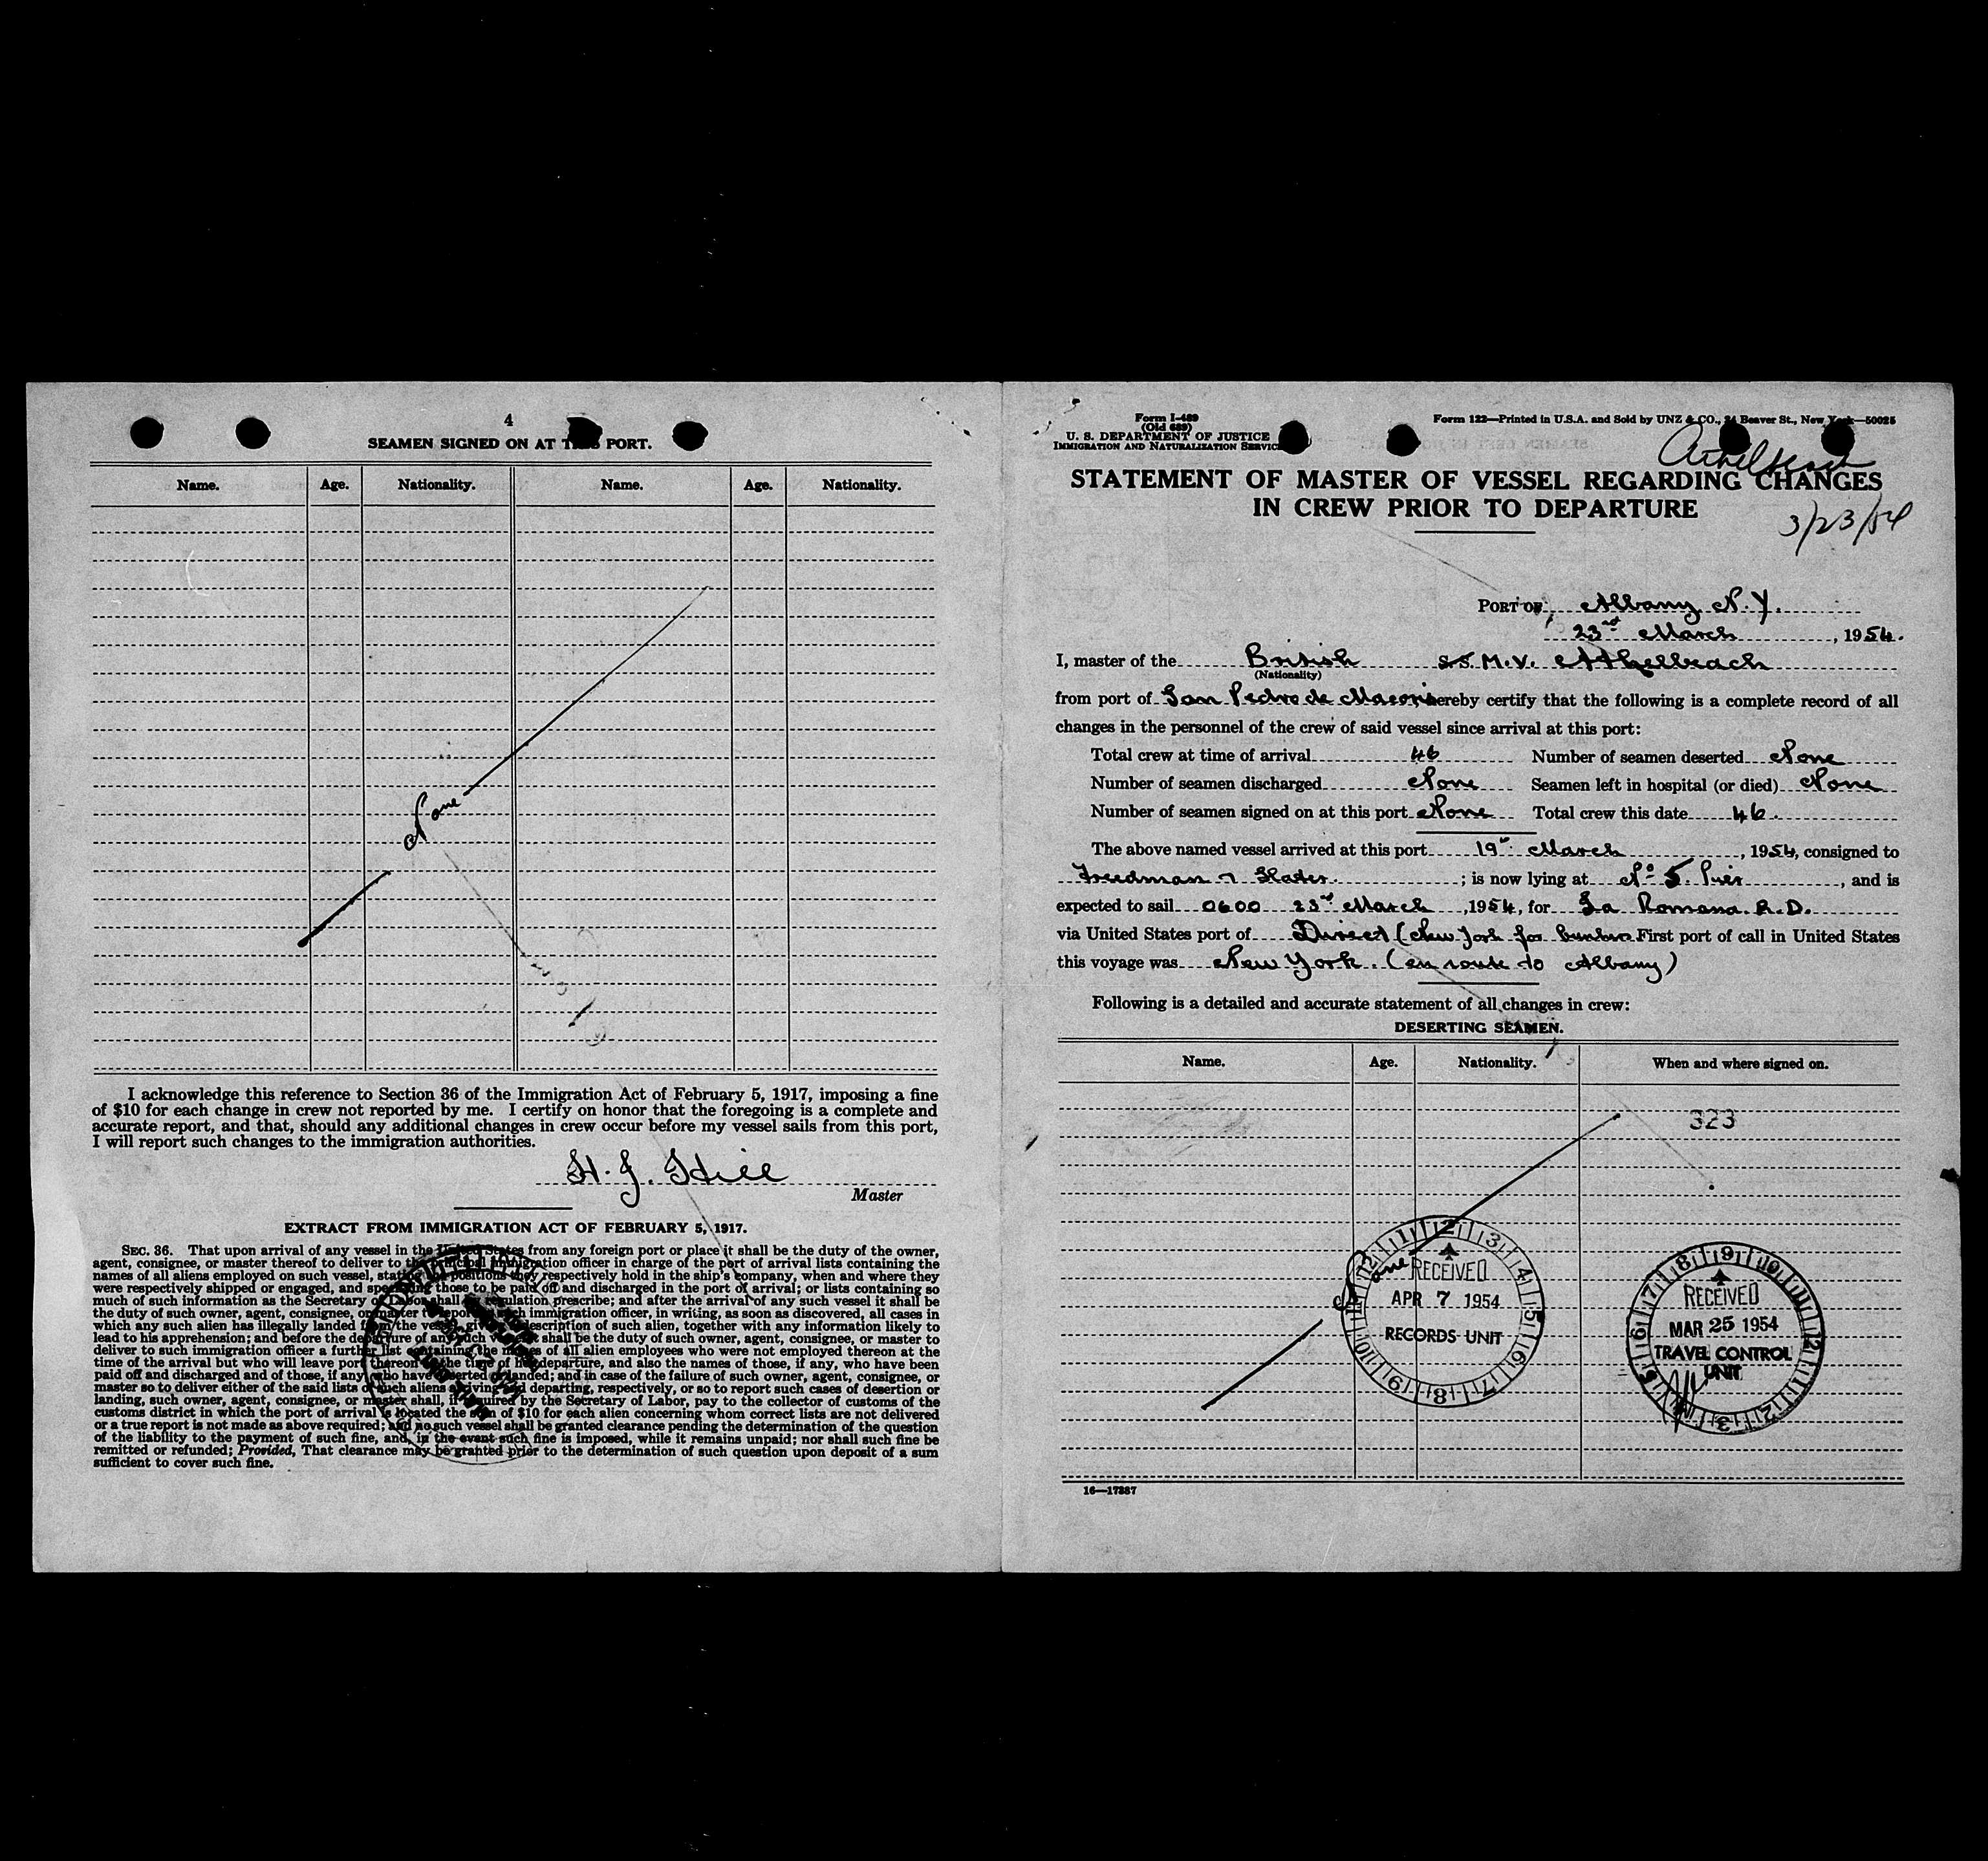 4
SEAMEN SIGNED ON AT THIS PORT.
Name. Age. Nationality. Name. Age. Nationality.
None
I acknowledge this reference to Section 36 of the Immigration Act of February 5, 1917, imposing a fine
of $10 for each change in crew not reported by me. I certify on honor that the foregoing is a complete and
accurate report, and that, should any additional changes in crew occur before my vessel sails from this port,
I will report such changes to the immigration authorities.
H. J. Hill
Master
EXTRACT FROM IMMIGRATION ACT OF FEBRUARY 5, 1917.
SEC. 36. That upon arrival of any vessel in the United States from any foreign port or place it shall be the duty of the owner,
agent, consignee, or master thereof to deliver to the principal immigration officer in charge of the port of arrival lists containing the
names of all aliens employed on such vessel, stating the positions they respectively hold in the ship's company, when and where they
were respectively shipped or engaged, and specifying those to be paid off and discharged in the port of arrival; or lists containing so
much of such information as the Secretary of Labor shall by regulation prescribe; and after the arrival of any such vessel it shall be
the duty of such owner, agent, consignee, or master to report to such immigration officer, in writing, as soon as discovered, all cases in
which any such alien has illegally landed from the vessel, giving a description of such alien, together with any information likely to
lead to his apprehension; and before the departure of any such vessel it shall be the duty of such owner, agent, consignee, or master to
deliver to such immigration officer a further list containing the names of all alien employees who were not employed thereon at the
time of the arrival but who will leave port thereon at the time of her departure, and also the names of those, if any, who have been
paid off and discharged and of those, if any, who have deserted or landed; and in case of the failure of such owner, agent, consignee, or
master so to deliver either of the said lists of such aliens arriving and departing, respectively, or so to report such cases of desertion or
landing, such owner, agent, consignee, or master shall, if required by the Secretary of Labor, pay to the collector of customs of the
customs district in which the port of arrival is located the sum of $10 for each alien concerning whom correct lists are not delivered
or a true report is not made as above required; and no such vessel shall be granted clearance pending the determination of the question
of the liability to the payment of such fine, and, in the event such fine is imposed, while it remains unpaid; nor shall such fine be
remitted or refunded; Provided, That clearance may be granted prior to the determination of such question upon deposit of a sum
sufficient to cover such fine.
Form I-489
(Old 689)
U. S. DEPARTMENT OF JUSTICE
IMMIGRATION AND NATURALIZATION SERVICE
Form 122—Printed in U.S.A. and Sold by UNZ & CO., 24 Beaver St., New York—50025
Athelbeach
STATEMENT OF MASTER OF VESSEL REGARDING CHANGES
IN CREW PRIOR TO DEPARTURE
3/23/54
PORT OF Albany N.Y.
23rd March, 1954.
I, master of the British S.S. M.V. Athelbeach
(Nationality)
from port of San Pedro de Macoris hereby certify that the following is a complete record of all
changes in the personnel of the crew of said vessel since arrival at this port:
Total crew at time of arrival 46 Number of seamen deserted None
Number of seamen discharged None Seamen left in hospital (or died) None
Number of seamen signed on at this port None Total crew this date 46.
The above named vessel arrived at this port 19th March, 1954, consigned to
Freedman & Slater.; is now lying at No 5. Pier, and is
expected to sail 0600 23rd March, 1954, for La Romana. R.D.
via United States port of Direct (New York for bunkers First port of call in United States
this voyage was New York. (en route to Albany)
Following is a detailed and accurate statement of all changes in crew:
DESERTING SEAMEN.
Name. Age. Nationality. When and where signed on.
323
None
RECEIVED
APR 7 1954
RECORDS UNIT
RECEIVED
MAR 25 1954
TRAVEL CONTROL
UNIT
16—17387